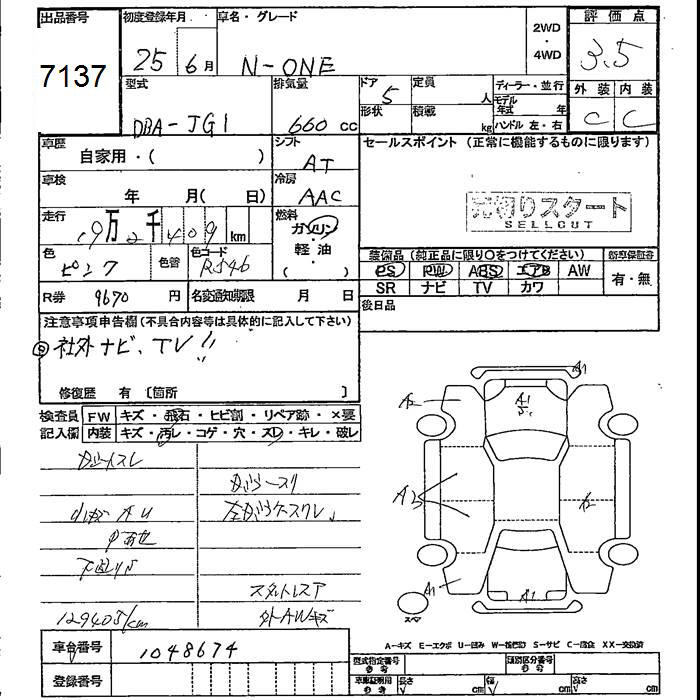 出品番号
7137
初度登録年月
25 6月
車名・グレード
N-ONE
2WD
・
4WD
評価点
3.5
外装 内装
C C
型式
DBA-JG1
排気量
660 cc
ドア
5
形状
定員
人
積載
kg
ディーラー・並行
モデル年式 年
ハンドル 左・右
車歴
自家用・( )
シフト
AT
セールスポイント (正常に機能するものに限ります)
売切りスタート
SELLCUT
車検
年 月( 日)
冷房
AAC
走行
19万2千409 km
燃料
ガソリン
軽油・
( )
色
ピンク
色替
色コード
R546
装備品 (純正品に限り○をつけてください)
新車保証書
PS PW ABS エアB AW
SR ナビ TV カワ
有・無
R券 9670 円
名変通知期限 月 日
後日品
注意事項申告欄(不具合内容等は具体的に記入して下さい)
◎社外ナビ、TV!!
修復歴 有 〔箇所 〕
検査員
記入欄
FW キズ・飛石・ヒビ割・リペア跡・×要
内装 キズ・汚レ・コゲ・穴・スレ・キレ・破レ
A2
A1
A1
A3
A2
A1
A1
スペア
129405/km
外AWキズ
A-キズ E-エクボ U-凹み W-補修跡 S-サビ C-腐食 XX-交換済
車台番号
1048674
型式指定番号
参考
類別区分番号
参考
車庫証明用
参考
長さ
√ cm
幅
√ cm
高さ
√ cm